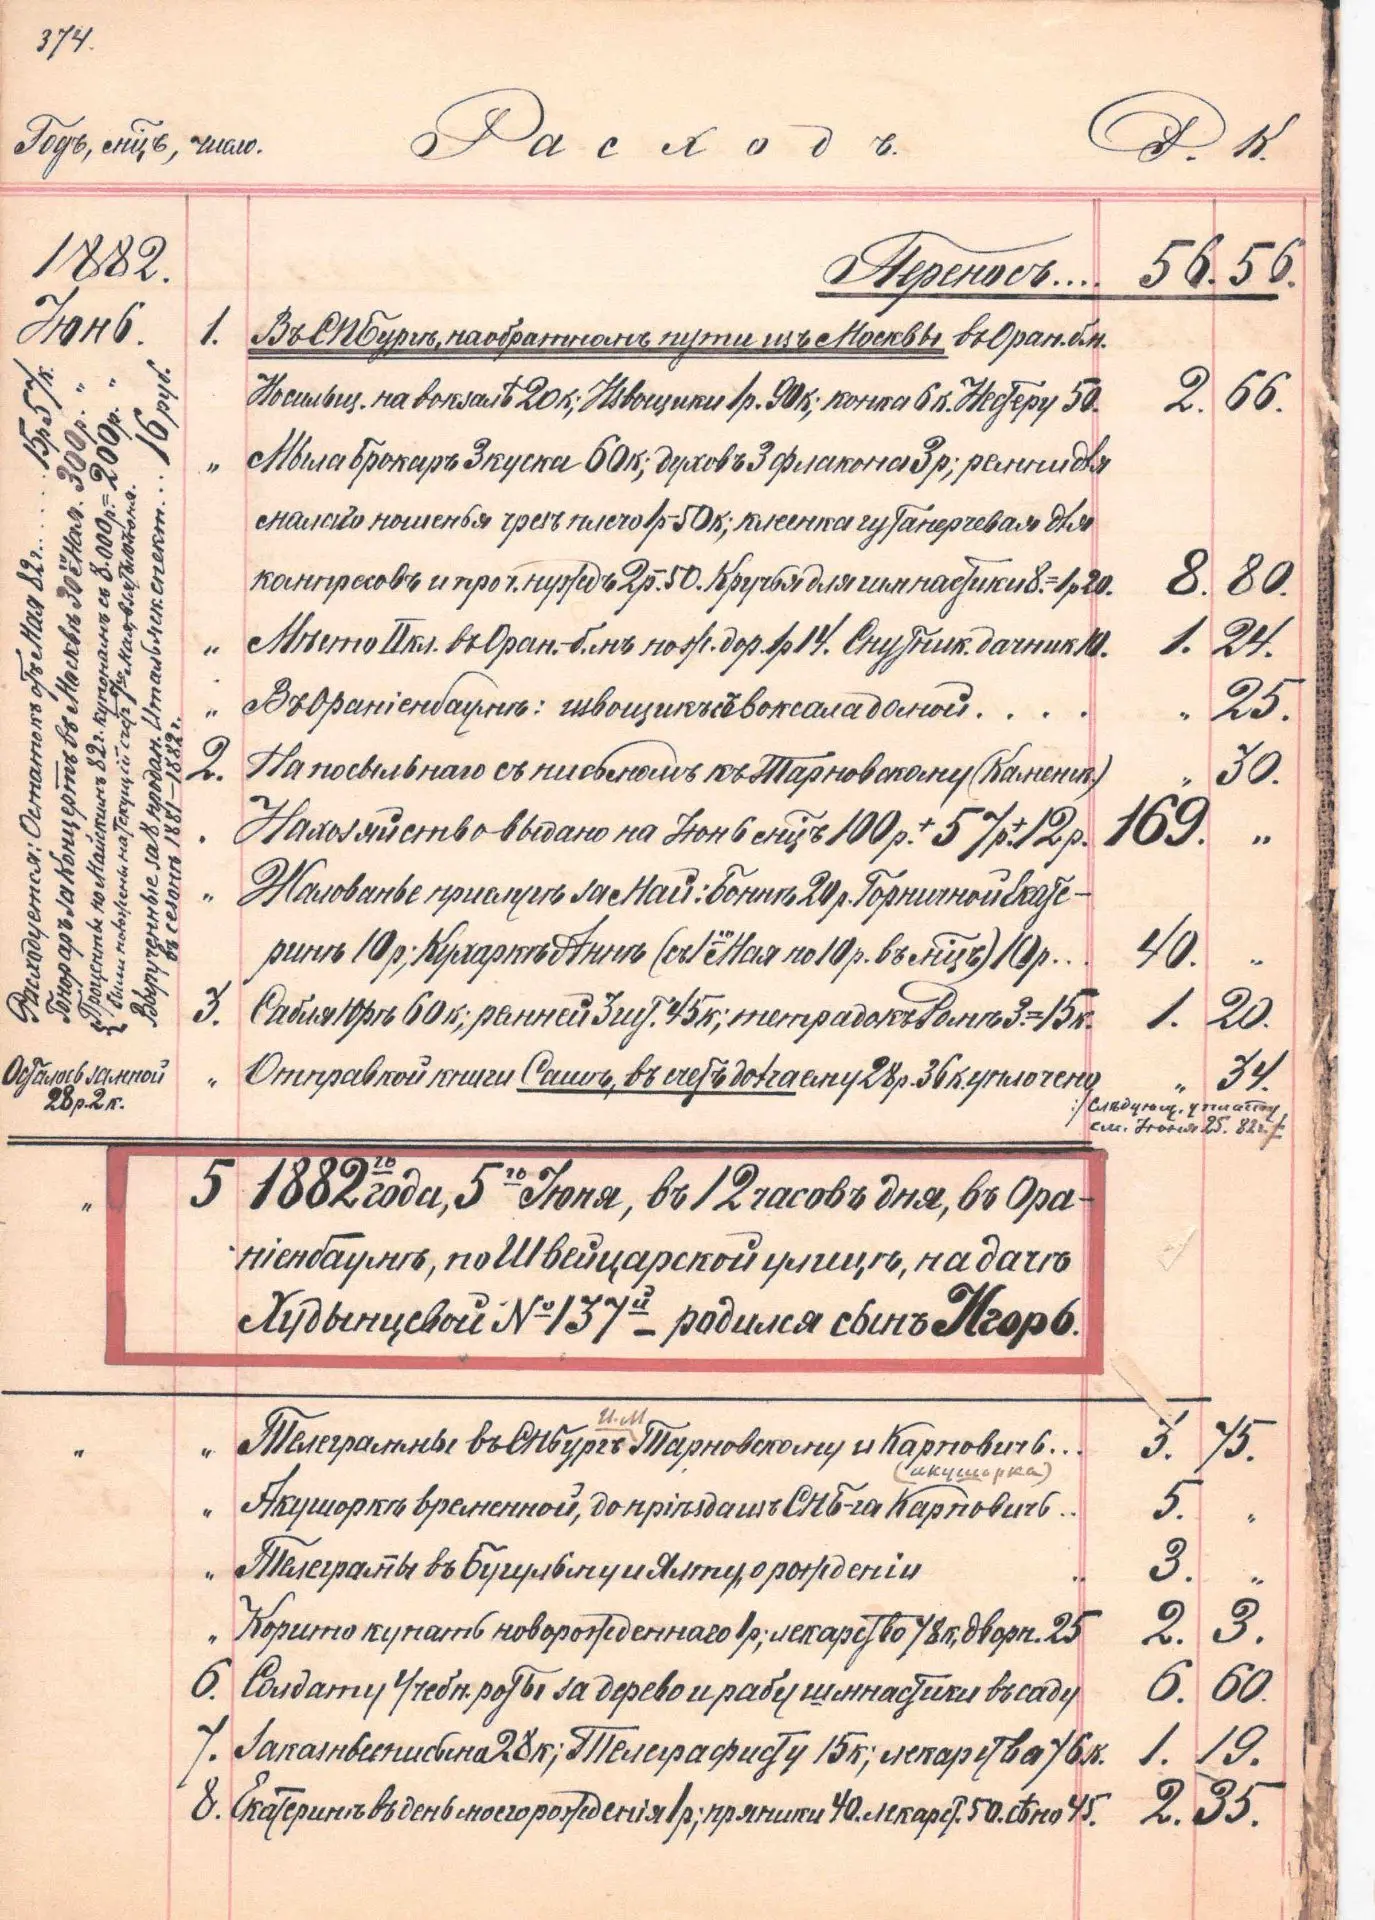 374.
Годъ, мц̃ъ, число. Расходъ. Р. К.
1882. Переносъ.... 56. 56.
Іюнь. 1. Въ СПбургѣ, на обратномъ пути изъ Москвы въ Оран.б.м.
Носильщ. на вокзалѣ 20к; Извощики 1р. 90к; конка 6к. 50. 2. 66.
„ Мыла Брокаръ 3 куска 60к; духовъ 3 флакона 3р; ремни для
малаго ношенья чрезъ плечо 1р-50к; клеенка гутаперчевая для
компресовъ и проч. нуждъ 2р-50. Крючья для гимнастики 8.=1р20. 8. 80.
„ Мѣсто II кл. въ Оран.-б.мъ по ж. дор. 1р 14. Спутник. дачник 10. 1. 24.
„ Въ Ораніенбаумѣ: извощикъ съ вокзала домой.... „ 25.
2. На посыльнаго съ письмомъ къ Тарновскому (Каменск.) „ 30.
. На хозяйство выдано на Іюнь мц̃ъ 100р.+57р.+12р. 169. „
„ Жалованье прислугѣ за Май: Боннѣ 20р. Горничной Екате-
ринѣ 10р; Кухаркѣ Аннѣ (съ 1го Мая по 10р. въ мц̃ъ) 10р... 40. „
3. Сабля Юрѣ 60к; ремней 3 шт. 45к; тетрадокъ Ромѣ 3.=15к. 1. 20.
„ Отправкой книги Сашѣ, въ счетъ долга ему 28р. 36к. уплочено „ 34.
:/ Слѣдующ. уплату
см. Іюня 25. 82г. /:
Расходуется: Остатокъ отъ Мая 82г...... 15р57к.
Гонораръ за Концертъ въ Москвѣ 30го Мая. 300р. „
Проценты по Майскимъ 82г. купонамъ съ 8.000р.= 200р. „
Вырученные за продан. Итальянск. спект... 16 руб.
въ сезонъ 1881–1882г.
Осталось за мной
28р.2к.
„ 5 1882го года, 5го Іюня, въ 12 часовъ дня, въ Ора-
ніенбаумѣ, по Швейцарской улицѣ, на дачѣ
Худынцевой №137й – родился сынъ Игорь.
И.М
„ „ Телеграммы въ СПбургъ Тарновскому и Карповичь... 3. 75.
(акушорка)
„ Акушоркѣ временной, до пріѣзда изъ СПБ-га Карповичь.. 5. „
„ Телеграм̃ы въ Бугульму и Ялту, о рожденіи .. 3. „
„ Корыто купать новорожденнаго 1р; лекарство 78к, дворн. 25 2. 3.
6. Солдату Учебн. роты за дерево и рабу гимнастики въ саду 6. 60.
7. Заказныя письма 28к; Телеграфисту 15к; лекарства 76к. 1. 19.
8. Екатеринѣ въ день моего рожденія 1р; пряники 40. лекарст. 50. сѣно 45. 2. 35.